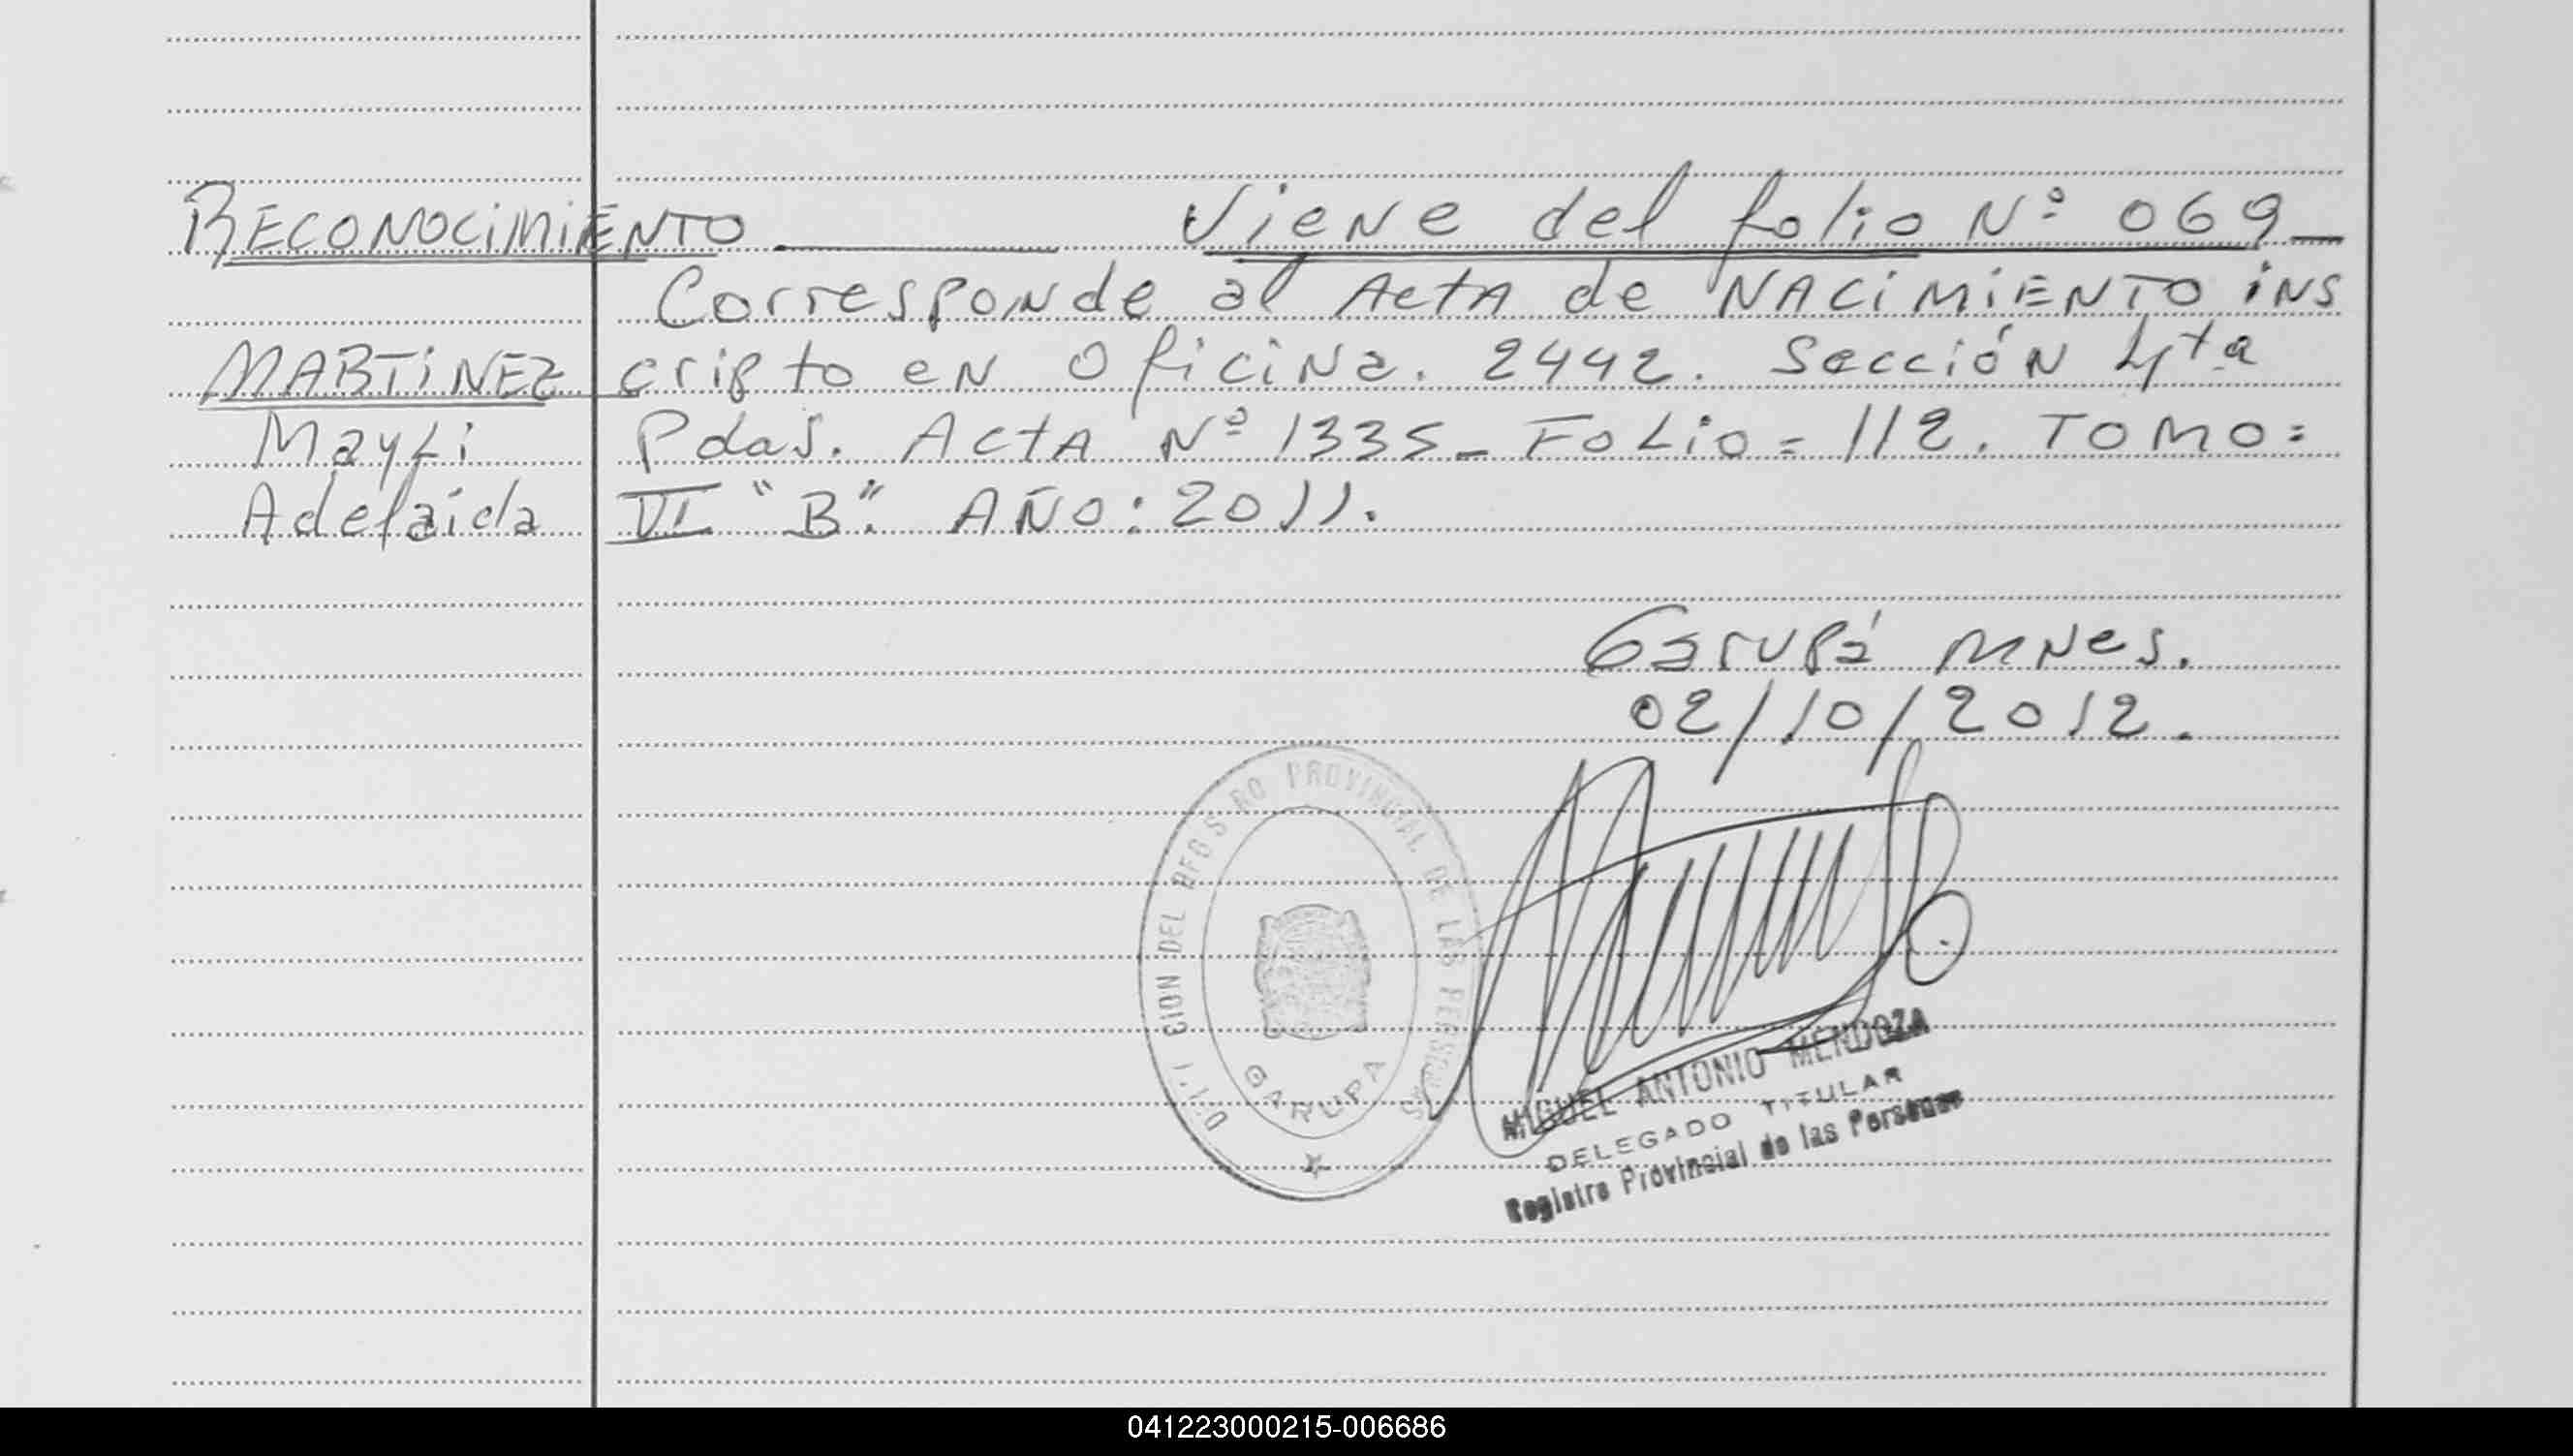 RECONOCIMIENTO
Viene del folio Nº 069_
Corresponde al Acta de NACIMIENTO ins
MARTINEZ
cripto en Oficina. 2442. Sección 4ta
Mayli
Pdas. Acta Nº 1335_ Folio= 112. TOMO:
Adelaida
VI "B". AÑO: 2011.
Garupá Mnes.
02/10/2012.
DEL REGISTRO PROVINCIAL DE LAS PERSONAS
GARUPA
MIGUEL ANTONIO MENDOZA
DELEGADO TITULAR
Registro Provincial de las Personas
041223000215-006686